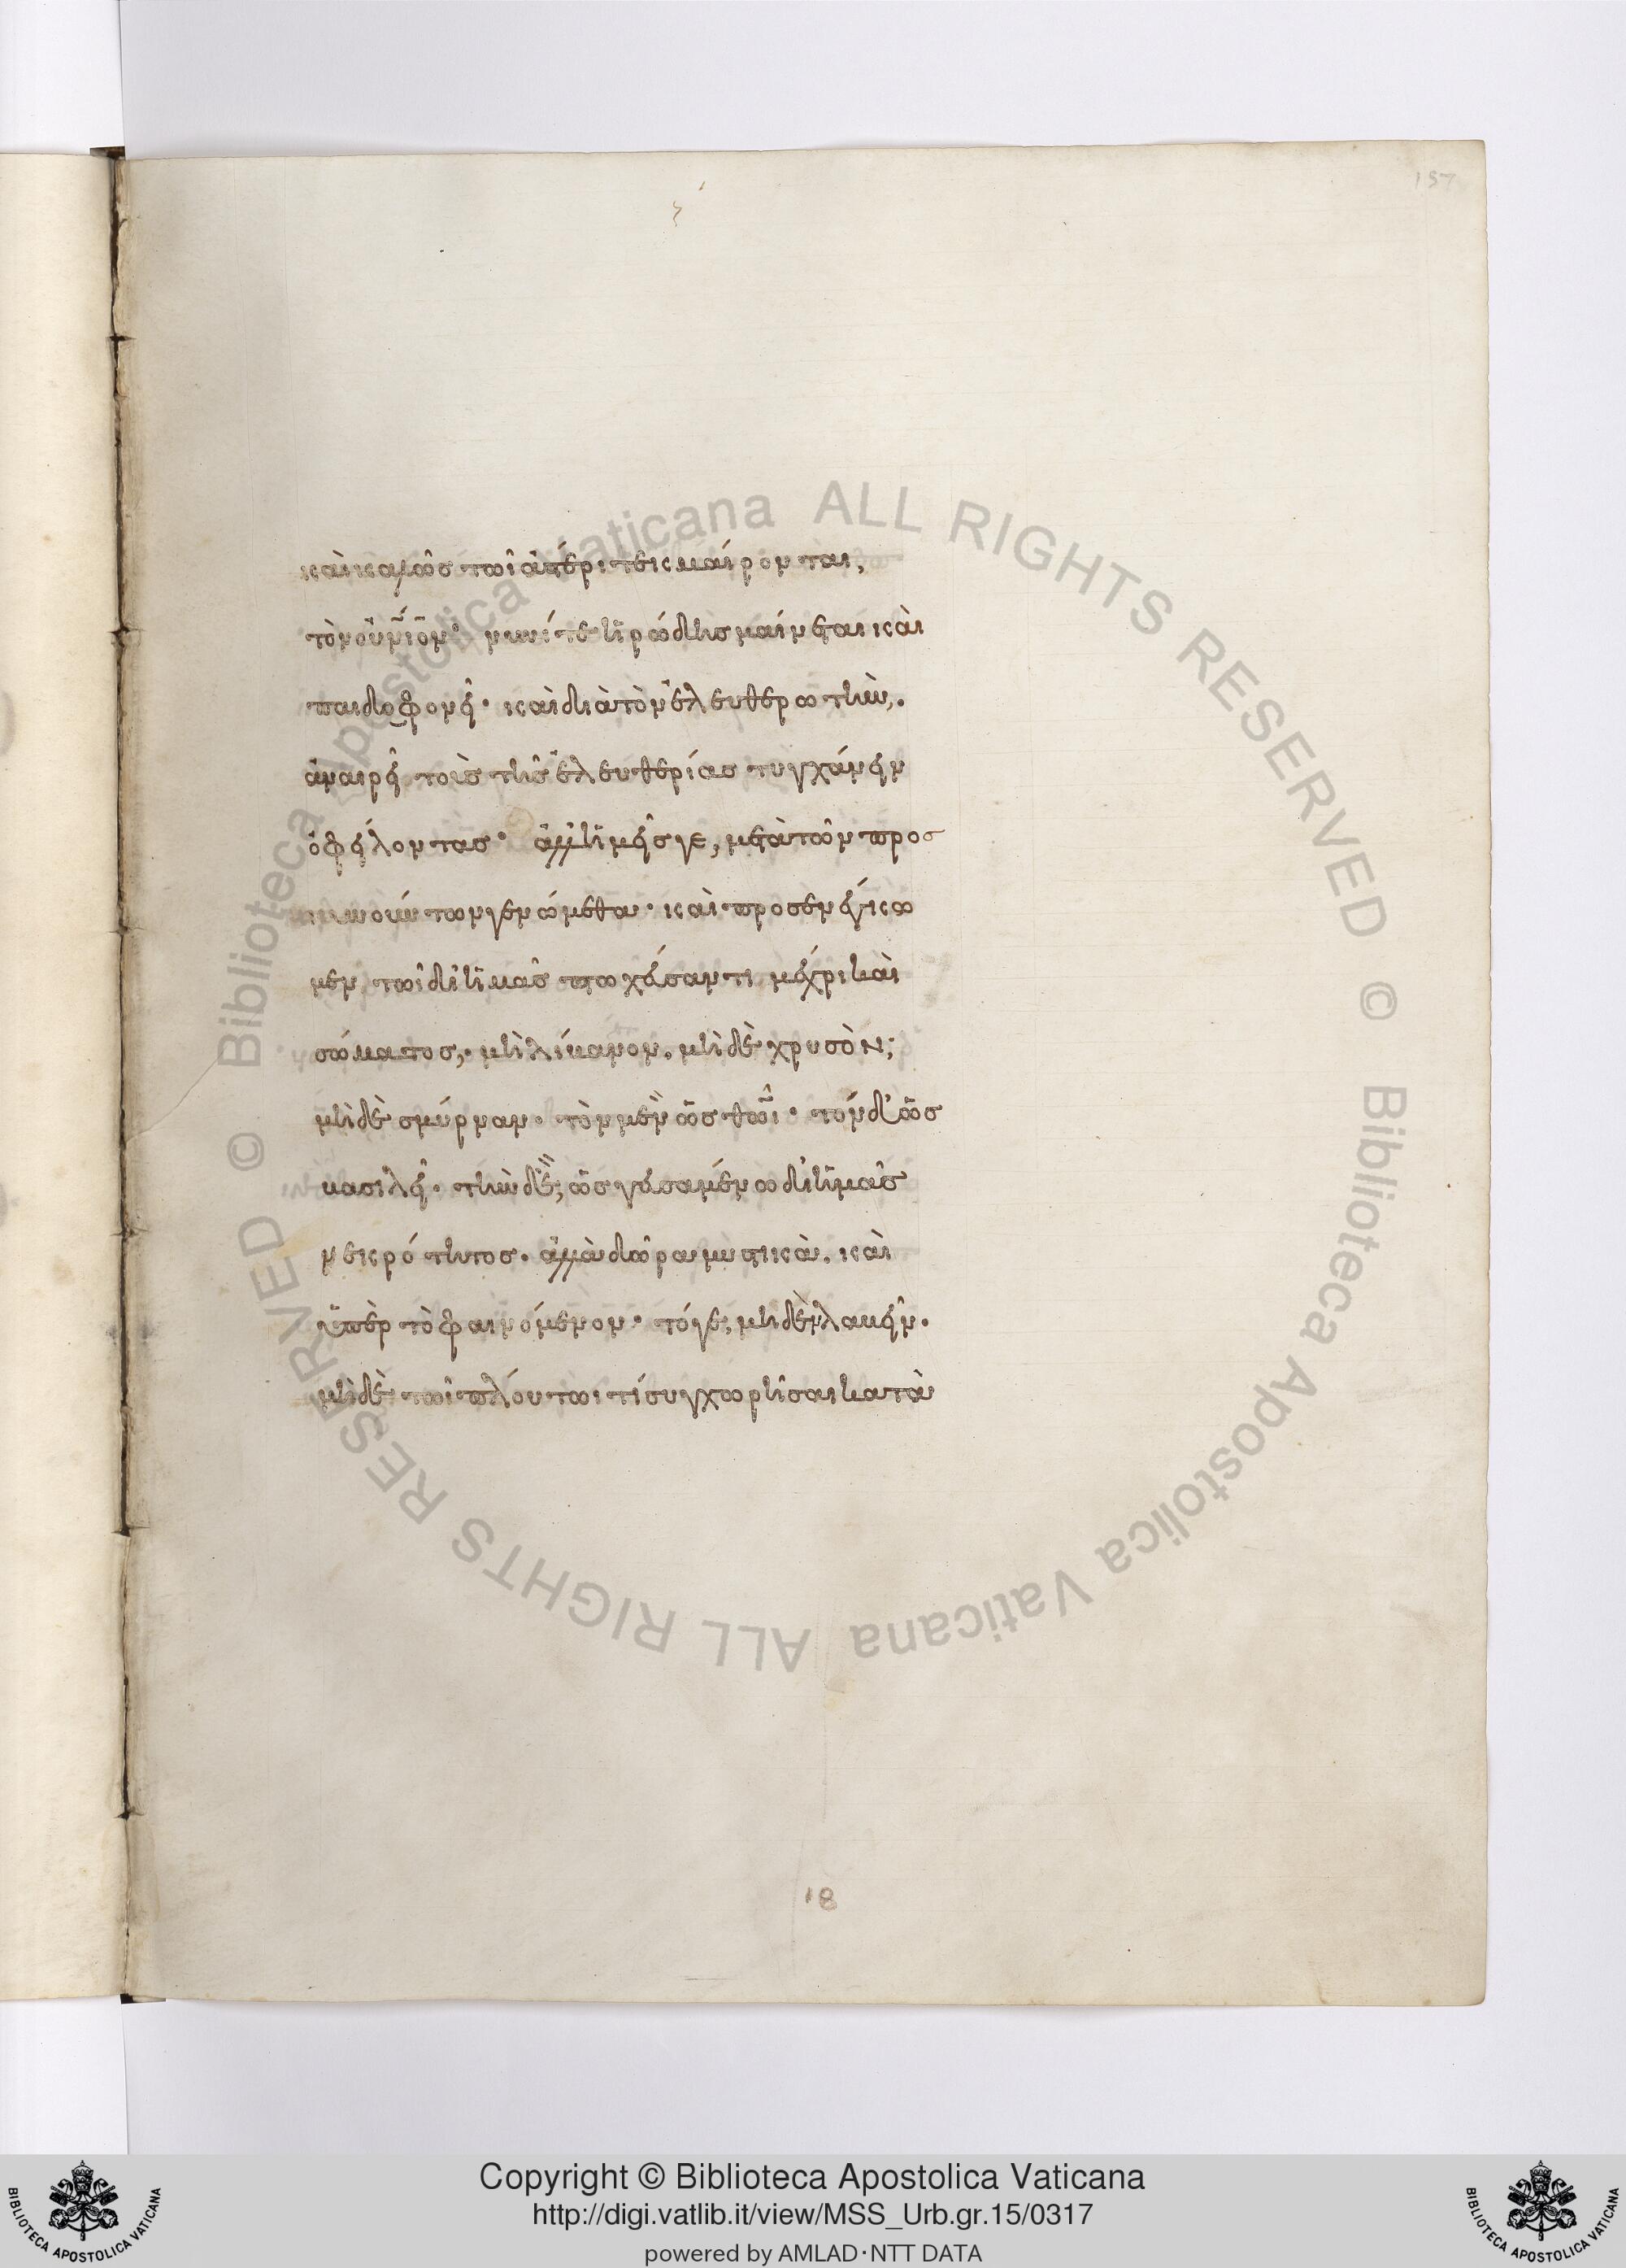 καὶ καλῶς τῶι ἀστέρι τεκμαίρονται,
τὸν οὐνιον· νυνί τε ἡρώδης μαίνεται καὶ
παιδοφονεῖ· καὶ διὰ τὸν ἐλευθερωτὴν,.
ἀναιρεῖ τοὺς τῆς ἐλευθερίας τυγχάνειν
ὀφείλοντας· ἀλλ' ἡμεῖς γε, μετὰ τῶν προσ
κυνούντων γενώμεθα· καὶ προσενείγκω
μεν τῶι δι' ἡμᾶς πτωχεύσαντι μέχρι καὶ
σώματος,· μὴ λίβανον. μηδὲ χρυσὸν;
μηδὲ σμύρναν· τὸν μὲν ὡς θῶι· τὸν δ' ὡς
βασιλεῖ· τὴν δὲ, ὡς γευσαμένω δι' ἡμᾶς
νεκρότητος. ἀλλὰ δῶρα μυστικὰ. καὶ
ὑπὲρ τὸ φαινόμενον· τό γε, μηδὲν λαβεῖν.
μηδὲ τῶι πλούτωι τί συγχωρῆσαι κατὰ
18
157
Copyright © Biblioteca Apostolica Vaticana
http://digi.vatlib.it/view/MSS_Urb.gr.15/0317
powered by AMLAD·NTT DATA
BIBLIOTECA APOSTOLICA VATICANA
BIBLIOTECA APOSTOLICA VATICANA
© Biblioteca Apostolica Vaticana ALL RIGHTS RESERVED
© Biblioteca Apostolica Vaticana ALL RIGHTS RESERVED